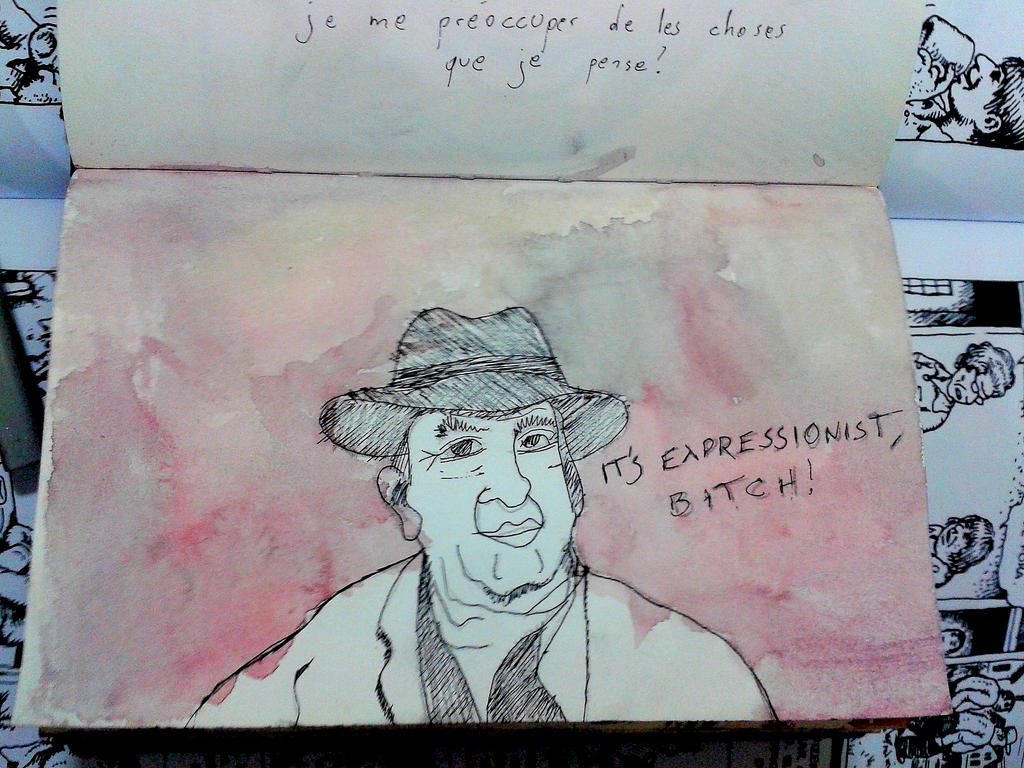 je me préoccuper de les choses
que je pense?
IT'S EXPRESSIONIST,
BITCH!